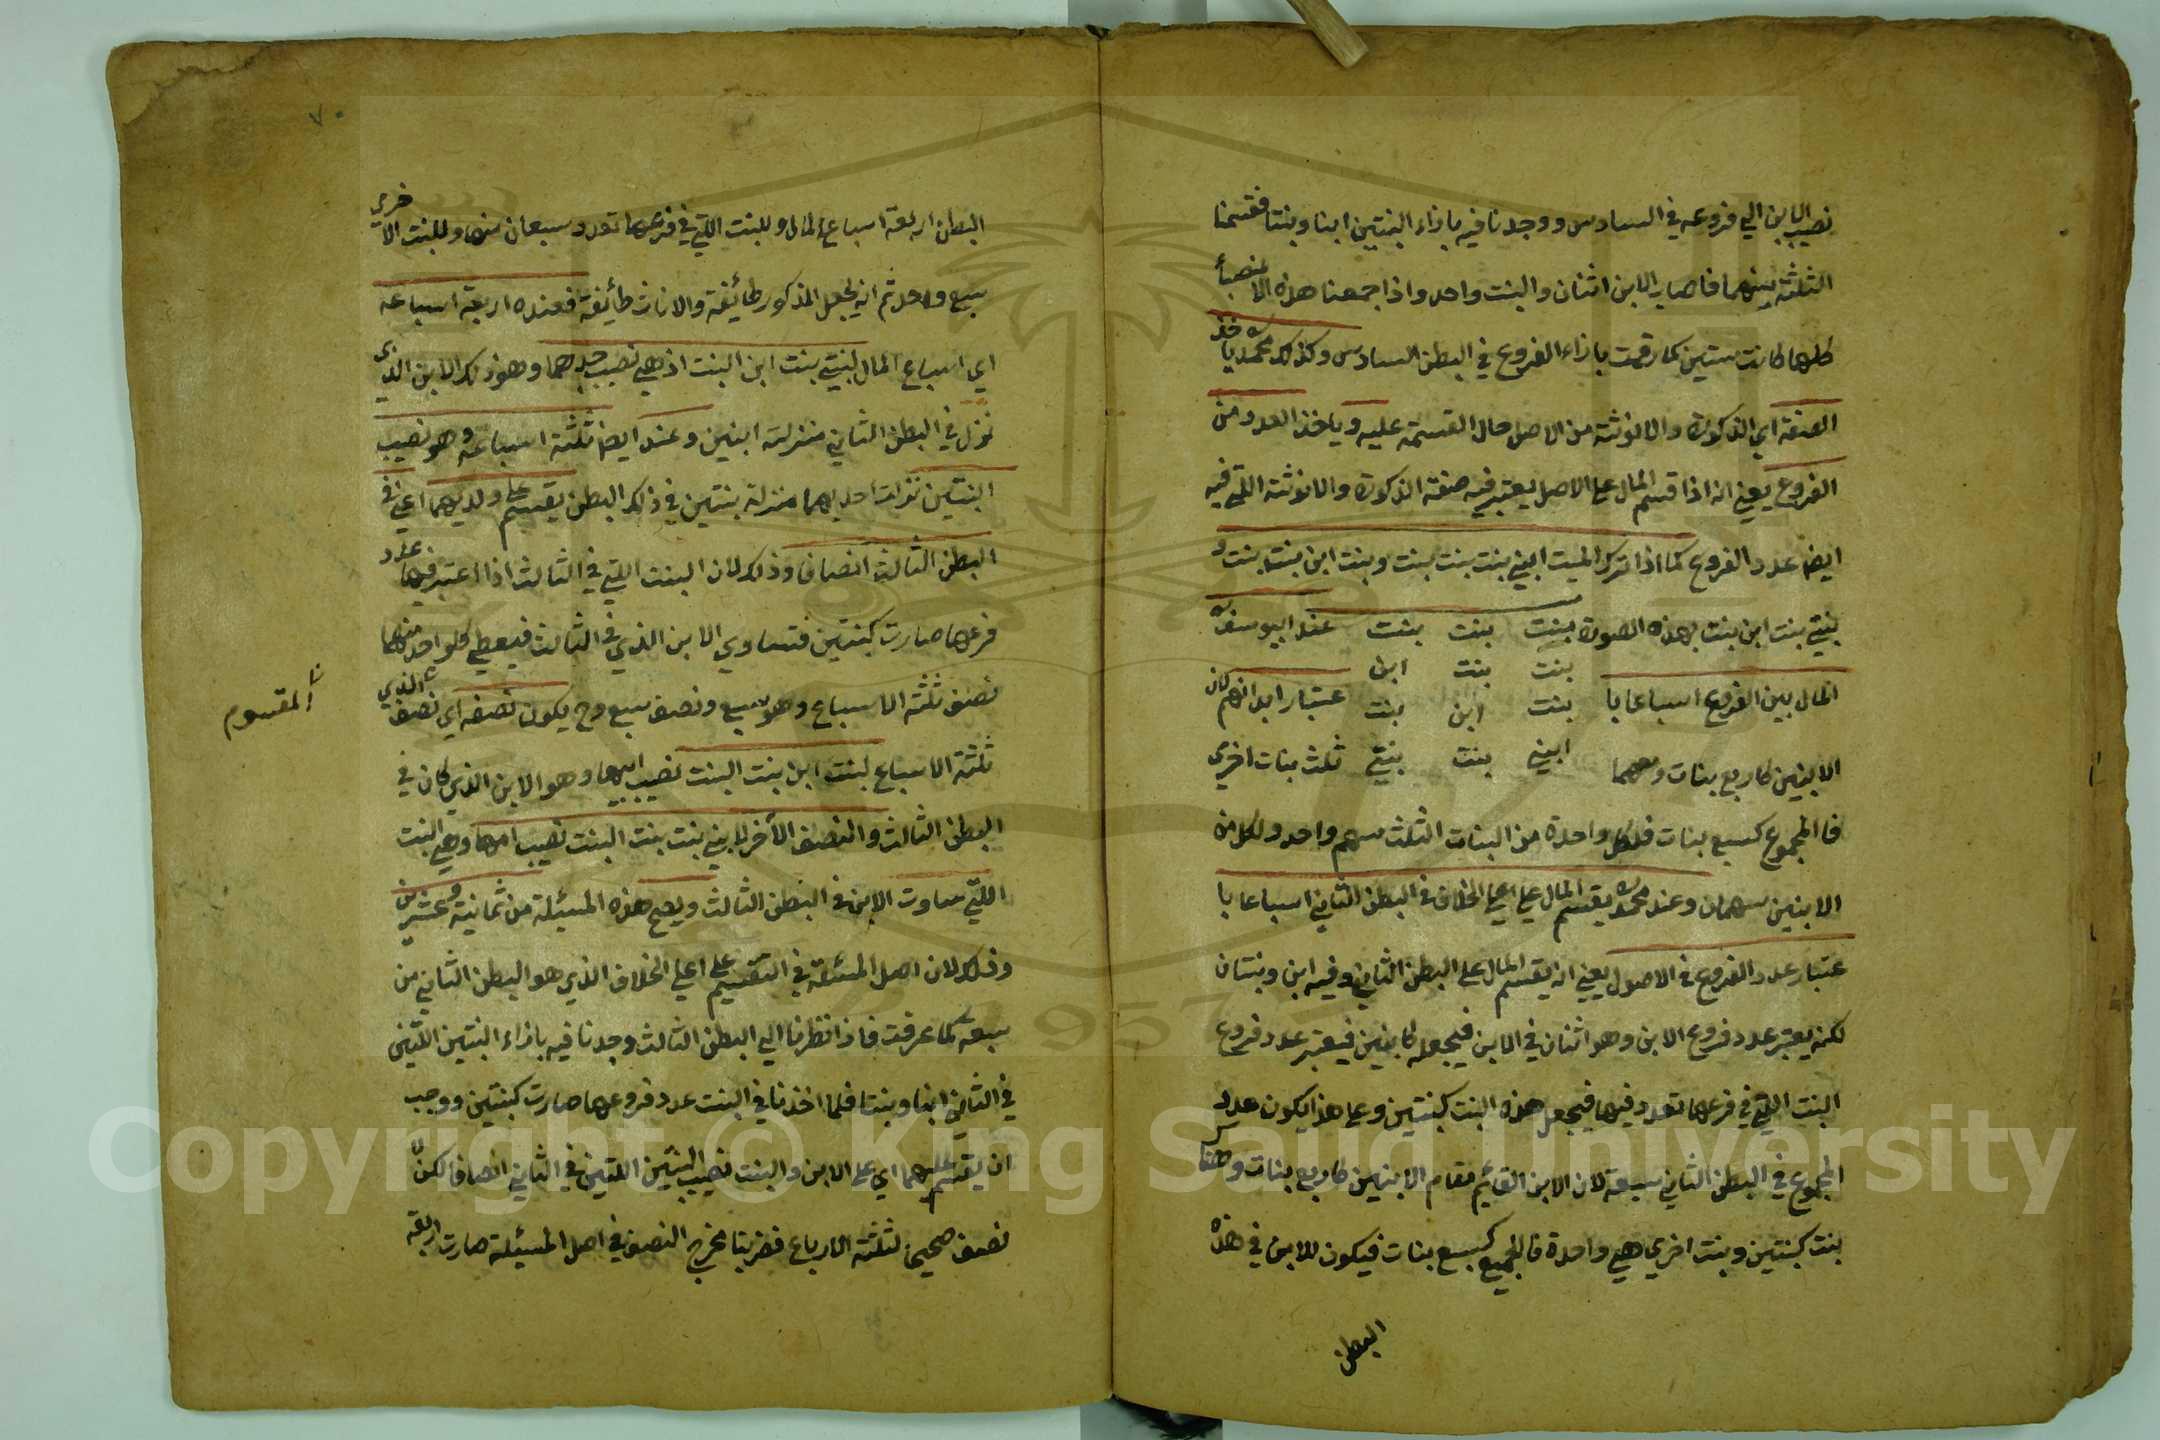 نصيب الابن الي فروعه في السادس ووجدنا فيه بازاء البنتين ابنا وبنتا فقسمنا
الثلثة بينهما فاصاب الابن اثنان والبنت واحد واذا جمعنا هذه الانصبأ
كلها كانت ستين كما رقمت بازاء الفروع في البطن السادس وكذلك محمد ياخذ
الصفة اي الذكورة والانوثة من الاصل حال القسمة عليه و ياخذ العدد من
الفروع يعني انه اذا قسم المال علي الاصل يعتبر فيه صفة الذكورة والانوثة التي فيه
ايضا عدد الفروع كما اذا ترك الميت ابني بنت بنت بنت وبنت ابن بنت بنت و
بنتي بنت ابن بنت بهذه الصورة بنت بنت بنت عند ابي يوسف
بنت بنت ابن
المال بين الفروع اسباعا با بنت ابن بنت عتبار ابدانهم كان
الابنين كاربع بنات ومعهما ابني بنت بنتي ثلث بنات اخري
فالمجموع كسبع بنات فلكل واحدة من البنات الثلث سهم واحد ولكل من
الابنين سهمان وعند محمد يقسم المال علي اعلي الخلاف في البطن الثاني اسباعا با
عتبار عدد الفروع في الاصول يعني انه يقسم المال علي البطن الثاني وفيه ابن وبنتان
لكنه يعتبر عدد فروع الابن وهو اثنان في الابن فيجعله كابنين فيعتبر عدد فروع
البنت التي في فرعها تعدد فيها فيجعل هذه البنت كبنتين وعلي هذا يكون عدد
المجموع في البطن الثاني سبعة لان الابن القائم مقام الابنين كاربع بنات وهنا
بنت كبنتين وبنت اخري هي واحدة فالجميع كسبع بنات فيكون للابن في هذه
البطن
٧٠
البطن اربعة اسباع المال وللبنت التي في فرعها تعدد سبعان منها وللبنت الاخري
سبع واحد ثم انه يجعل المذكور طائفة والاناث طائفة فعنده اربعة اسباعه
اي اسباع المال لبنتي بنت ابن البنت اذ هي نصيب جدهما وهو ذلك الابن الذي
نزل في البطن الثاني منزلة ابنين وعنده ايضا ثلثة اسباعه وهو نصيب
البنتين نزلت احديهما منزلة بنتين في ذلك البطن يقسم علي ولديهما اعني في
البطن الثالث انصافا وذلك لان البنت التي في الثالث اذا اعتبر فيها عدد
فرعها صارت كبنتين فتساوي الابن الذي في الثالث فيعطي كلواحد منهما
نصف ثلثة الاسباع وهو سبع ونصف سبع وح يكون نصفه اي نصف الذي
ثلثة الاسباع لبنت ابن بنت البنت نصيب ابيها وهو الابن الذي كان في
البطن الثالث والنصف الاخر لابني بنت بنت البنت نصيب امها وهي البنت
التي ساوت الابن في البطن الثالث ويصح هذه المسئلة من ثمانية وعشرين
وذلك لان اصل المسئلة في التقسيم علي اعلي الخلاف الذي هو البطن الثاني من
سبعة كما عرفت فاذا نظرنا الي البطن الثالث وجدنا فيه بازاء البنتين اللتين
في الثاني ابنا وبنتا فلما اخذنا في البنت عدد فروعها صارت كبنتين ووجب
ان يقسم عليهما اي علي الابن والبنت نصيب البنتين اللتين في الثاني انصافا لكن لا
نصف صحيحا لثلثة الارباع فضربنا مخرج النصف في اصل المسئلة صارت اربعة
المقسوم
Copyright © King Saud University
1957